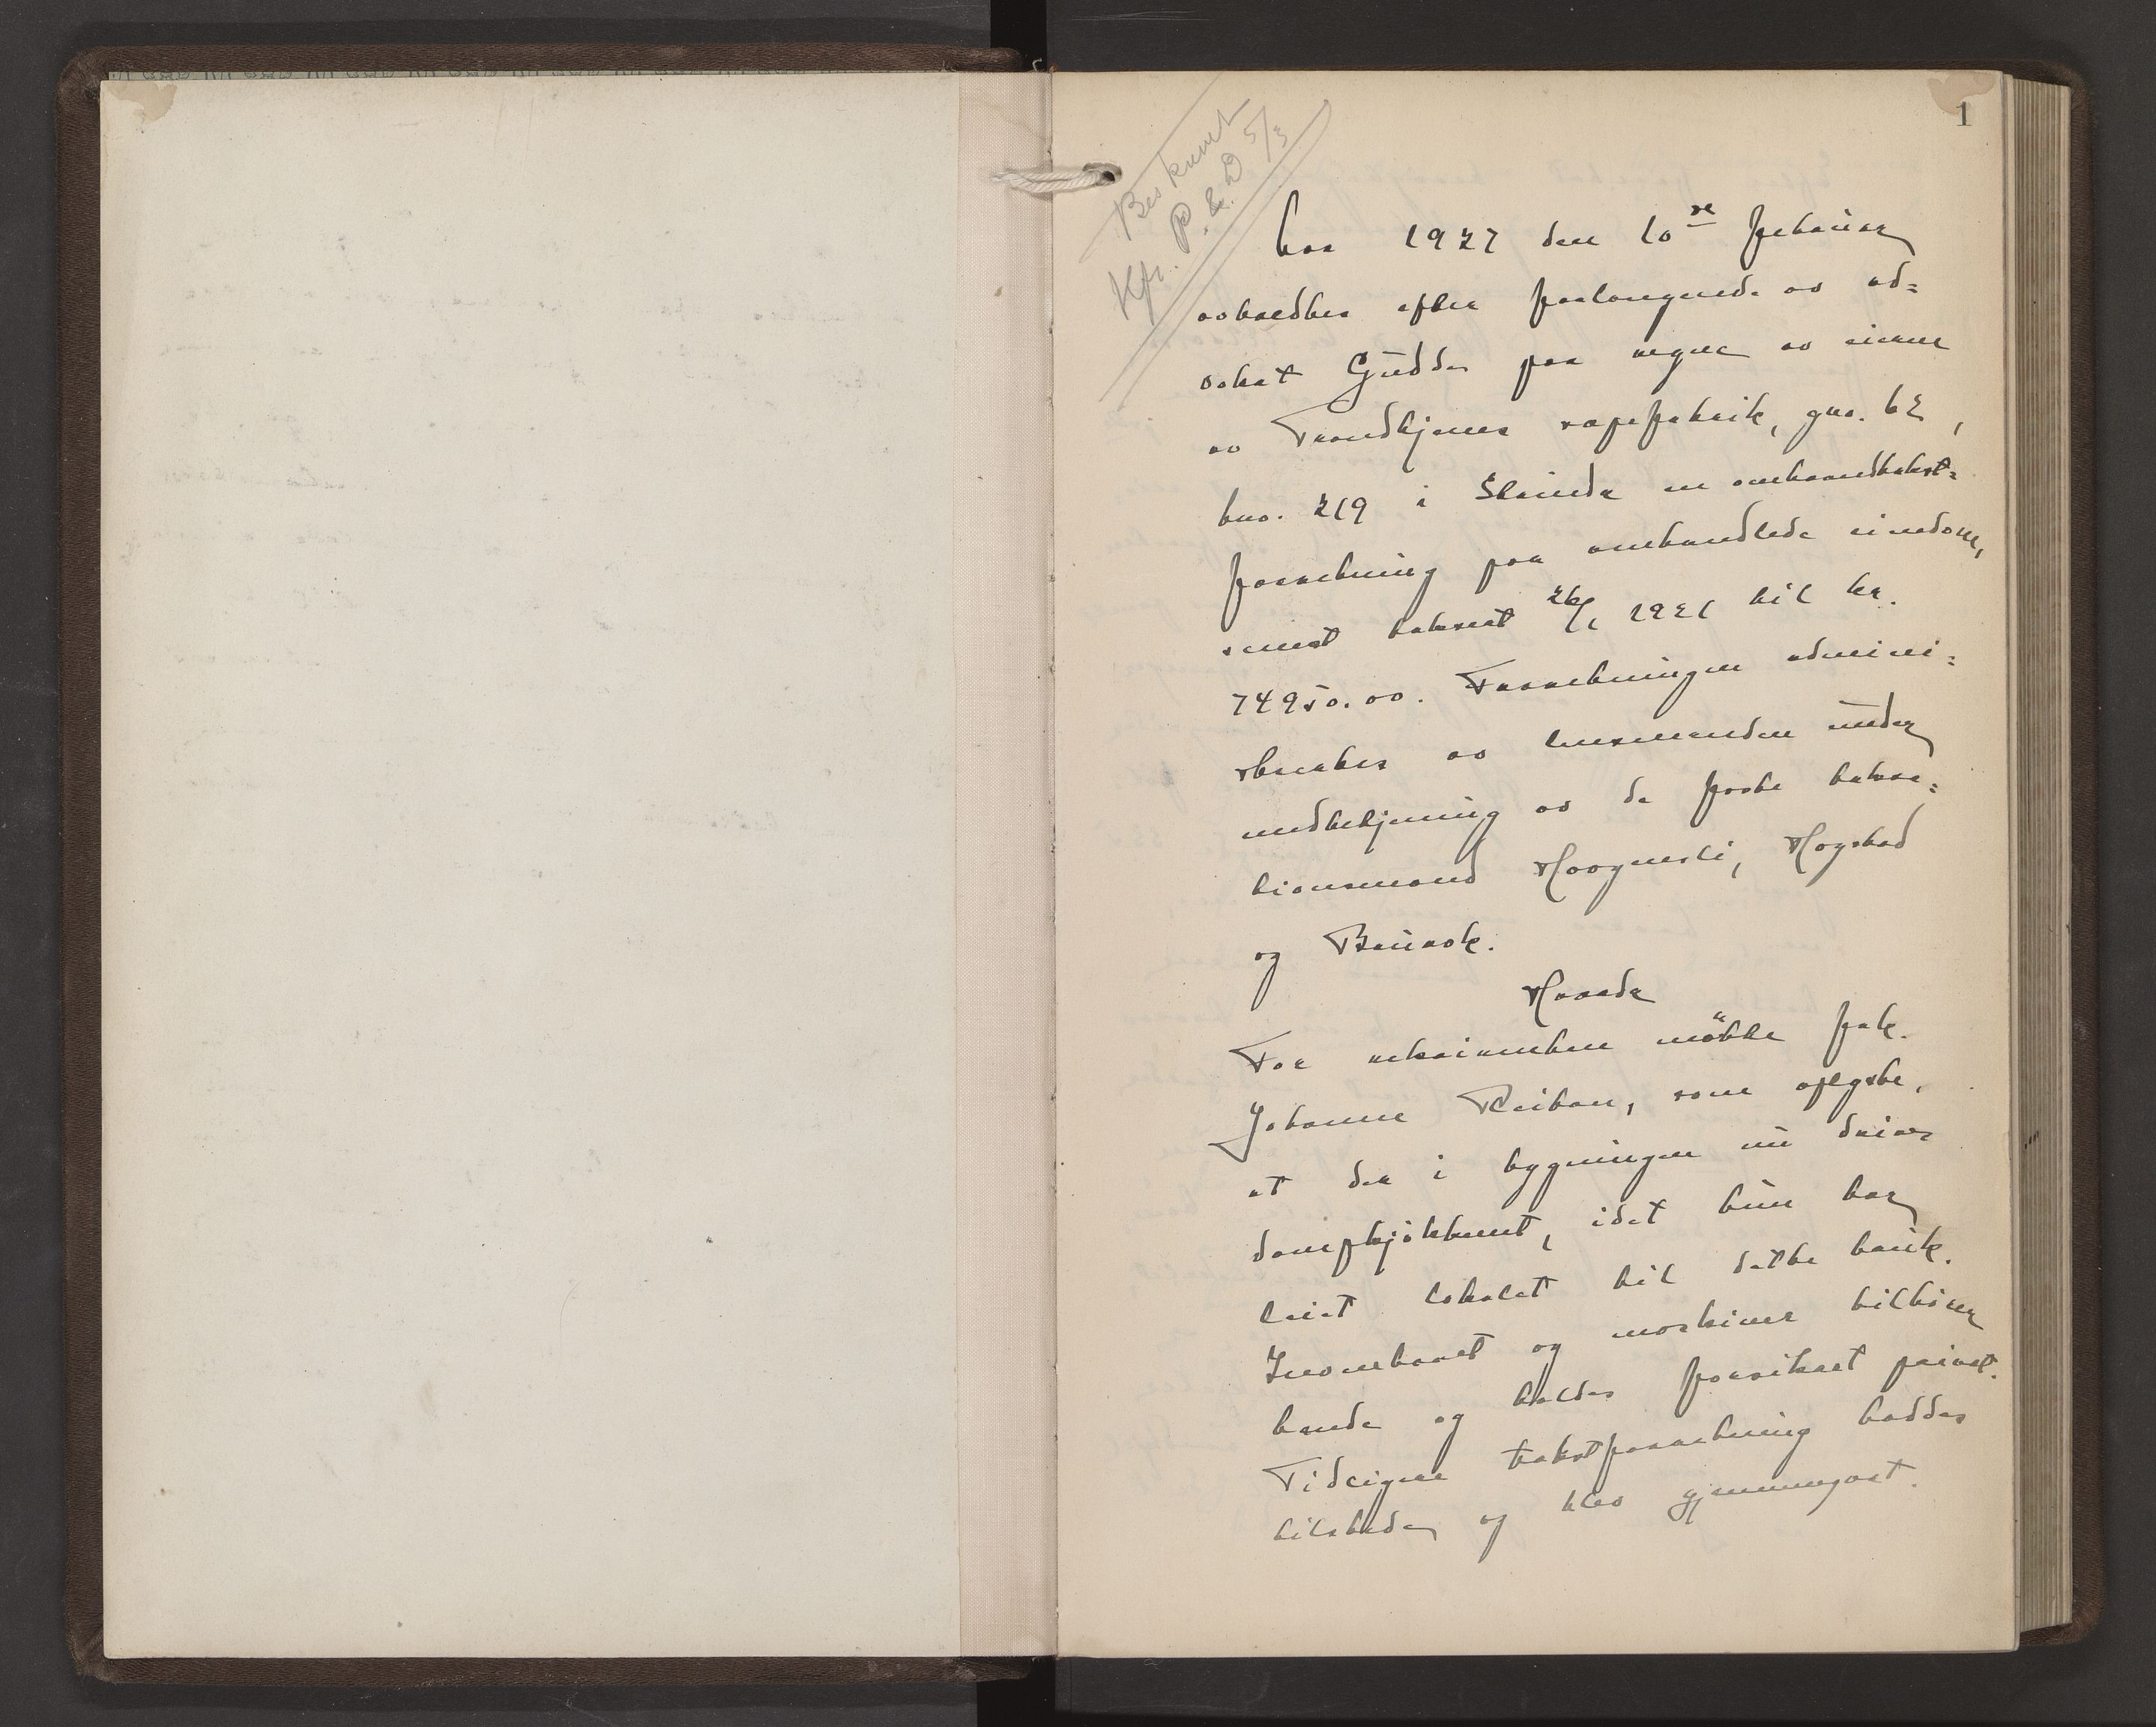 1
Beskrevet
Kfr. P. & D 5/3
Aar 1927 den 10de februar
avholdtes efter forlangende av ad=
vokat Gudde paa vegne av eieren
av Trondhjems sæpefabrik, gno. 62,
bno. 219 i Strinda en omhaandtakst=
forretning paa omhandlede eiendom,
senest takseret 26/1 1921 til kr.
74950.00. Forretningen admini=
streretes av lensmanden under
medbetjening av de faste taksa=
tionsmænd Moognesli, Rogstad
og Brurok.
For rekvirenten møtte frk.
Johanne Reitan, som oplyste,
at der i bygningen nu drives
dampkjøkkenet, idet hun har
leiet lokalet til dette bruk.
Inventaret og maskiner tilhører
hende og holdes forsikret privat.
Tidligere takstforretning haddes
tilstede og blev gjennemgaat.